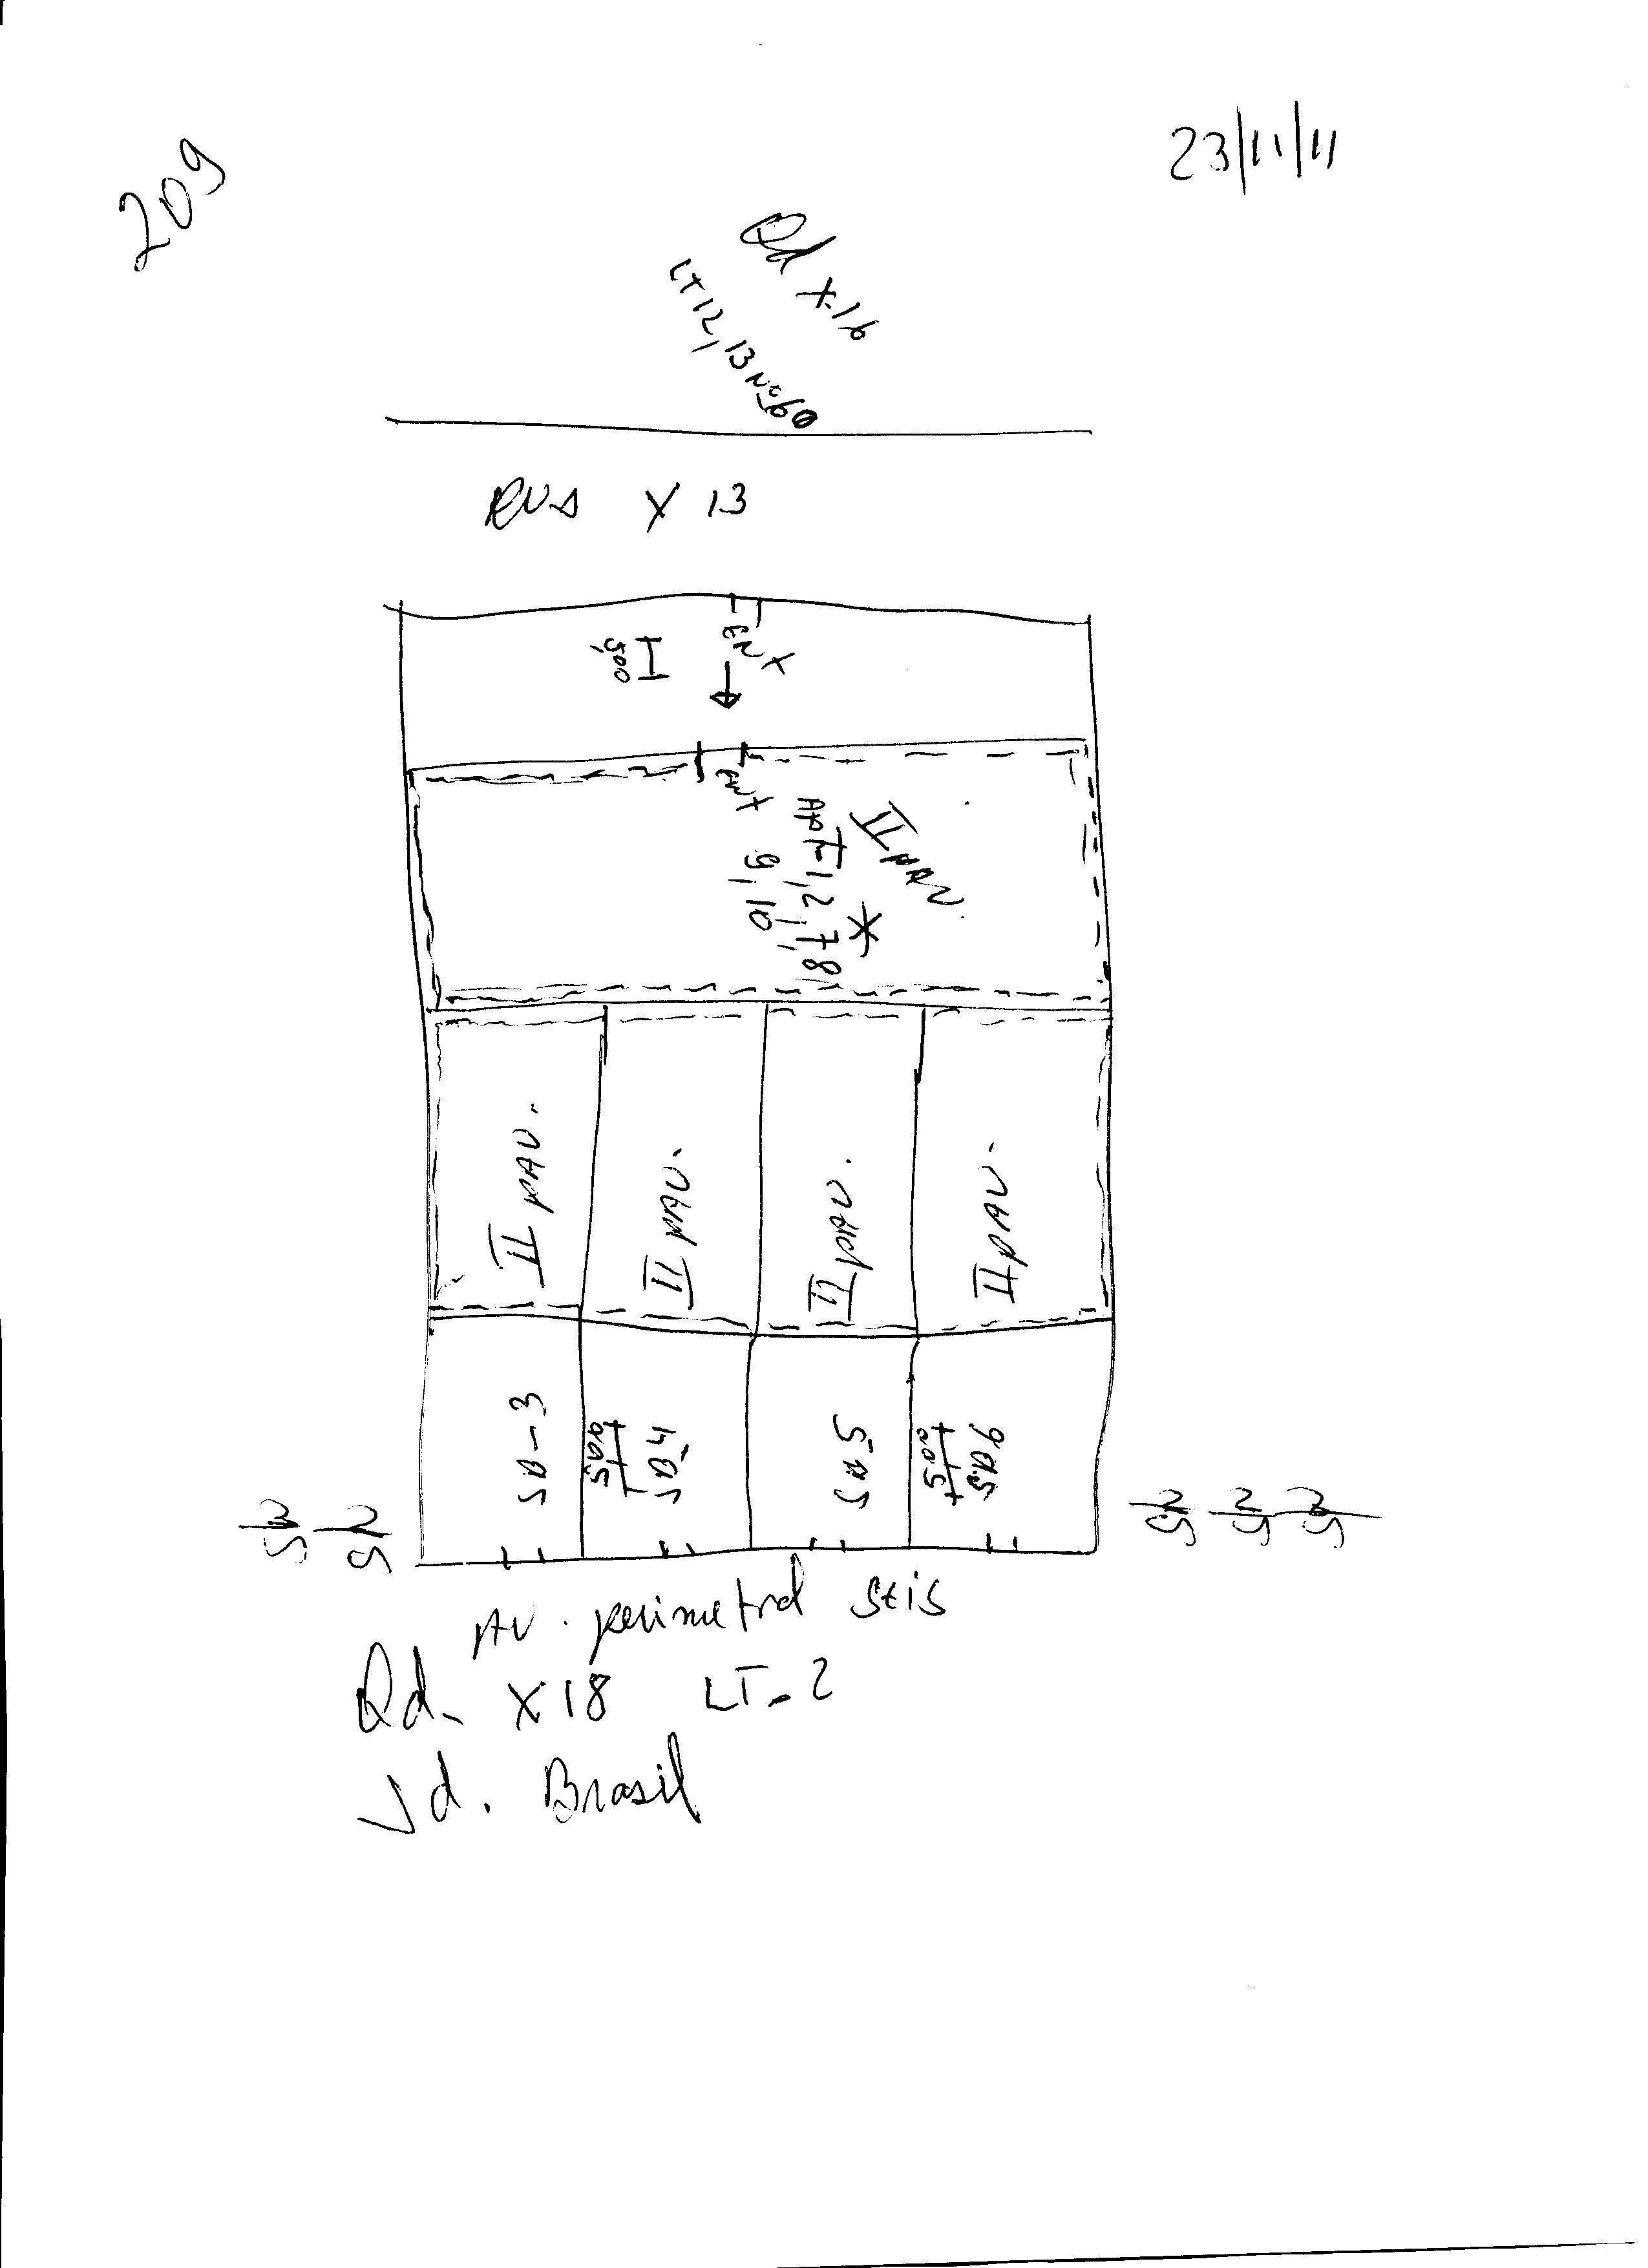 209
23/11/11
Qd X-16
LT 12, 13 Nº 60
RUA X 13
ENT
I
500
ENT
II PAV.
APT-1,2,7,8,
9,10
*
II PAV.
II PAV.
II PAV.
II PAV.
SB-3
SB-4
SB-5
SB.6
AV. perimetral Seis
Qd- X18 LT-2
Jd. Brasil